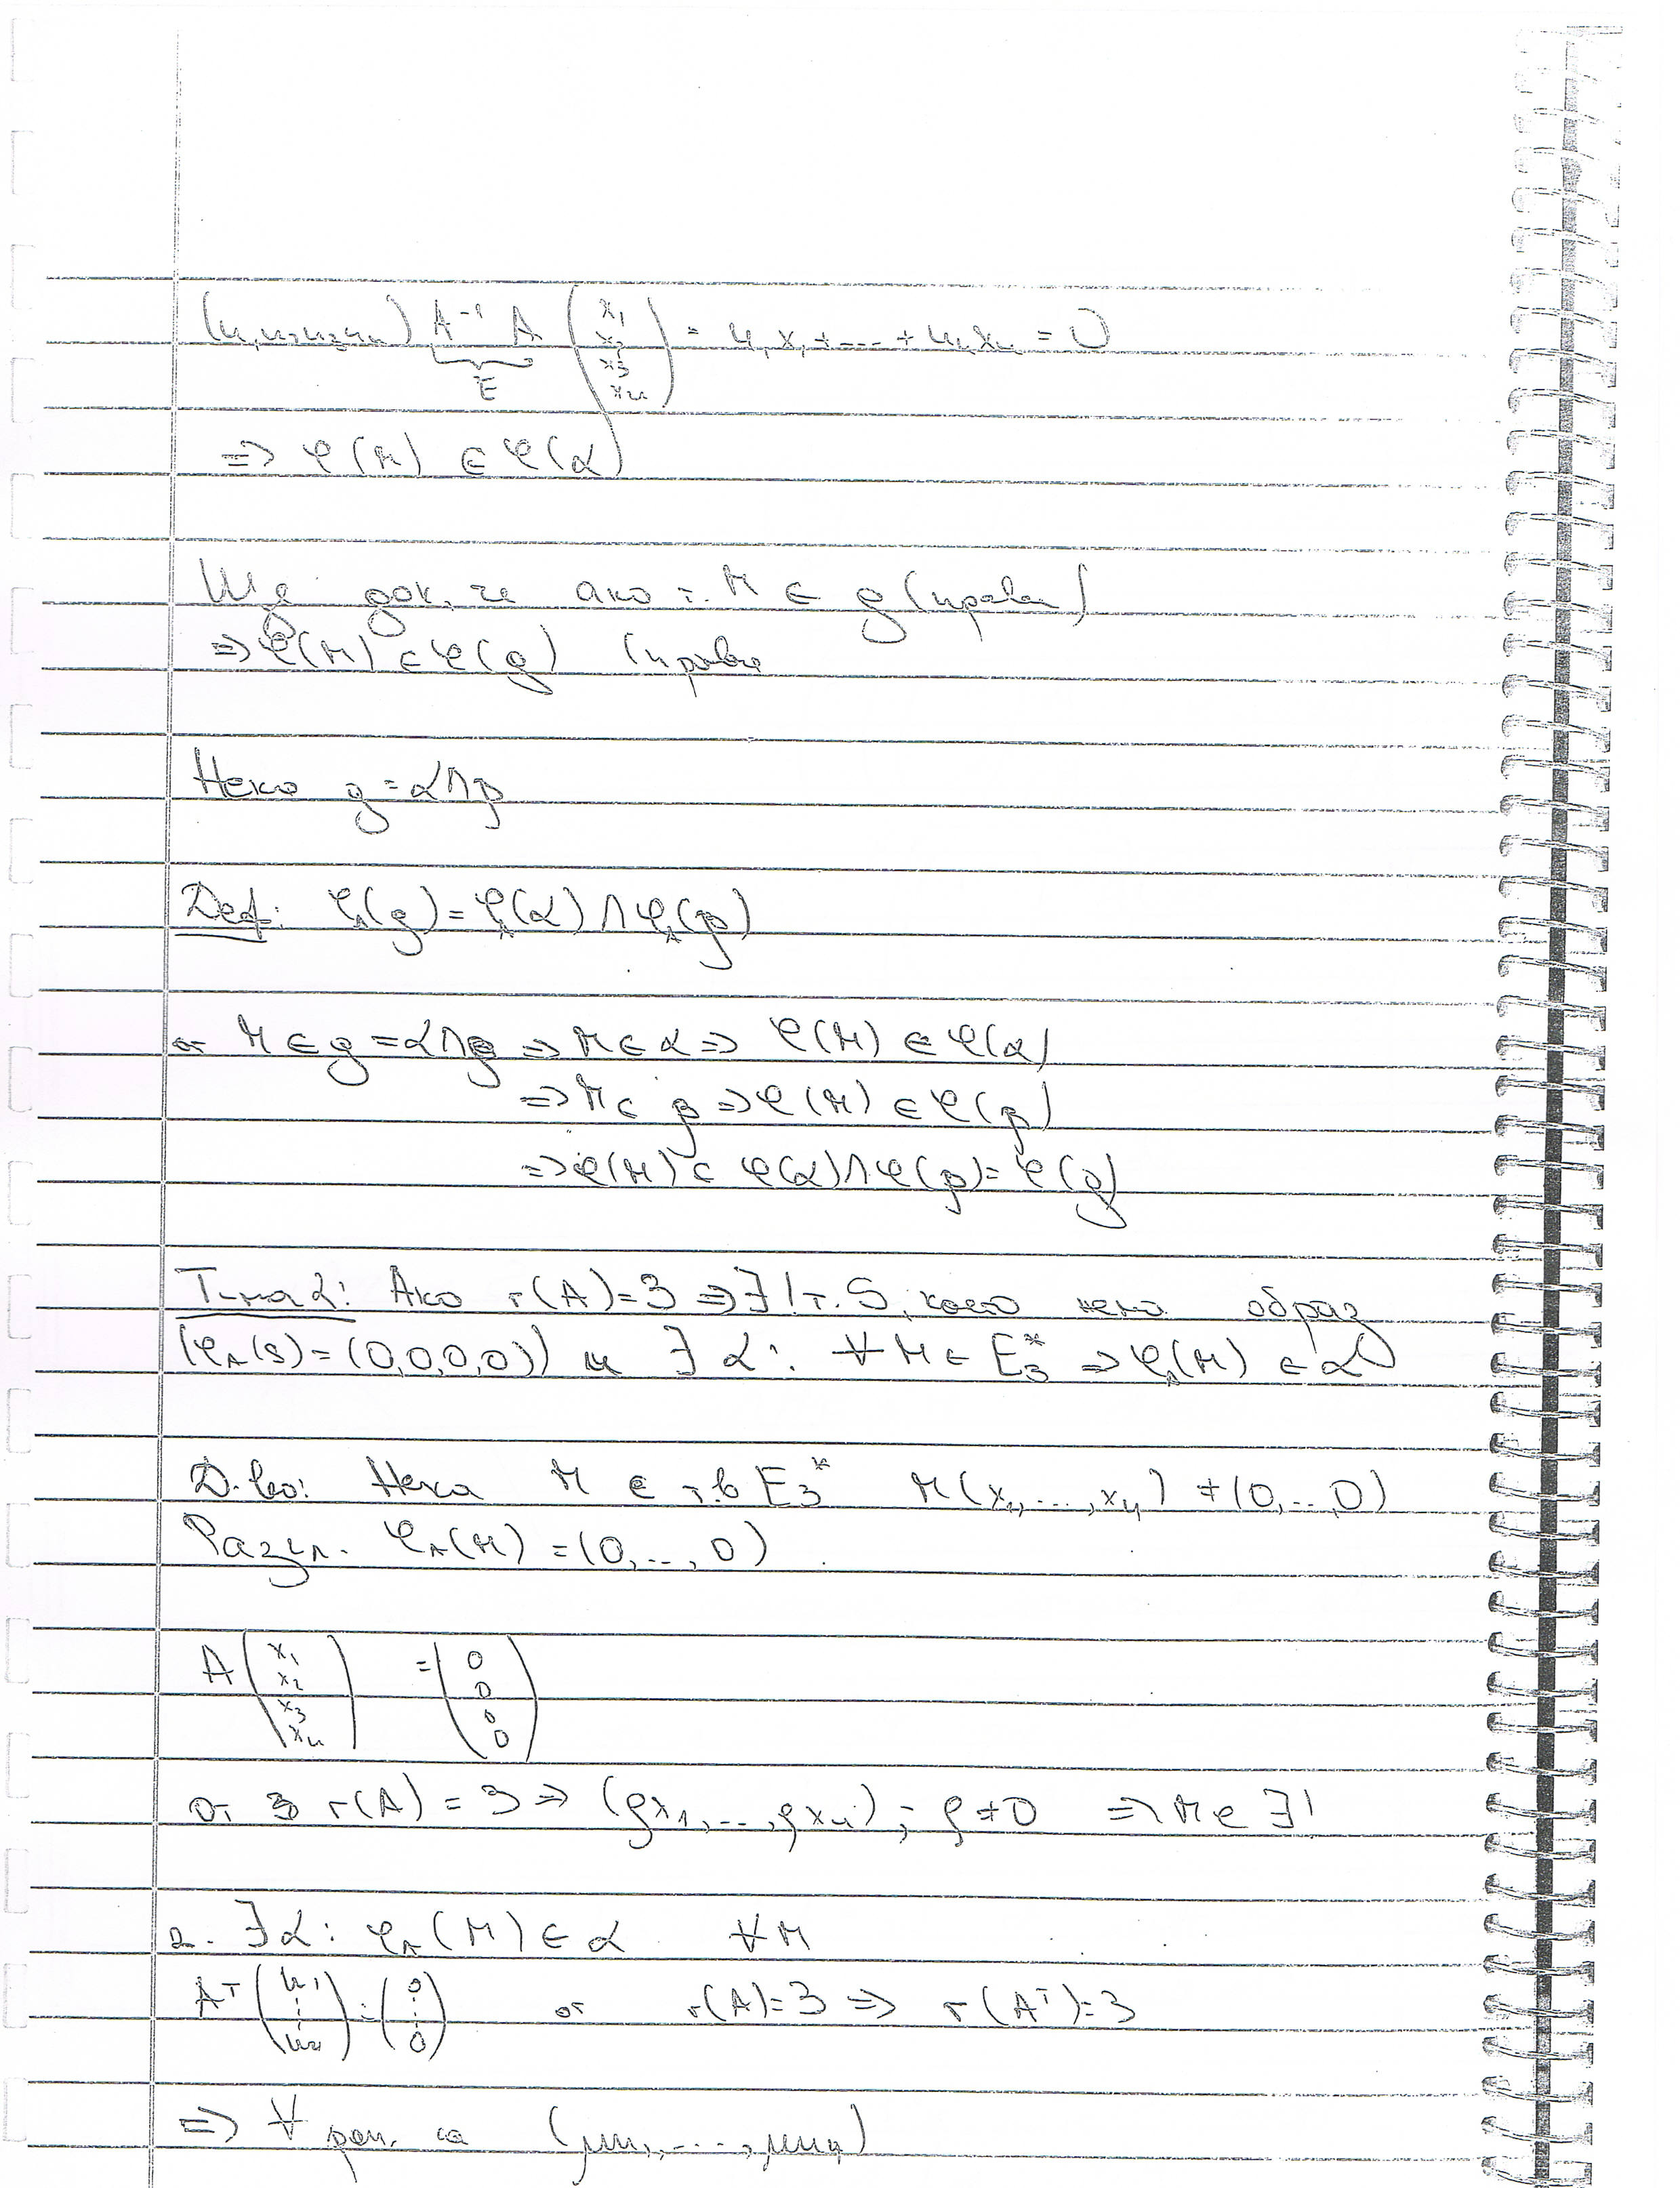 (u₁ u₂ u₃ u₄) A⁻¹ A (x₁ x₂ x₃ x₄) = u₁x₁ + ... + u₄x₄ = 0
E
=> φ(M) ∈ φ(α)
Ще док. че ако т. M ∈ g (права)
=> φ(M) ∈ φ(g) (права
Нека g = α ∩ β
Деф: φ_A(g) = φ_A(α) ∩ φ_A(β)
от M ∈ g = α ∩ β => M ∈ α => φ(M) ∈ φ(α)
=> M ∈ β => φ(M) ∈ φ(β)
=> φ(M) ∈ φ(α) ∩ φ(β) = φ(g)
Т-ма 2: Ако r(A) = 3 => ∃! т. S, която няма образ
(φ_A(S) = (0,0,0,0)) и ∃ α : ∀ M ∈ E₃* => φ_A(M) ∈ α
Д-во: Нека M е т. в E₃* M(x₁, ..., x₄) ≠ (0, ..., 0)
Разгл. φ_A(M) = (0, ..., 0)
A (x₁ x₂ x₃ x₄) = (0 0 0 0)
от r(A) = 3 => (ρx₁, ..., ρx₄) ; ρ ≠ 0 => M е ∃!
2. ∃ α : φ_A(M) ∈ α ∀ M
Aᵀ (u₁ ⋮ u₄) = (0 ⋮ 0) от r(A) = 3 => r(Aᵀ) = 3
=> ∀ реш. са (μu₁, ..., μu₄)